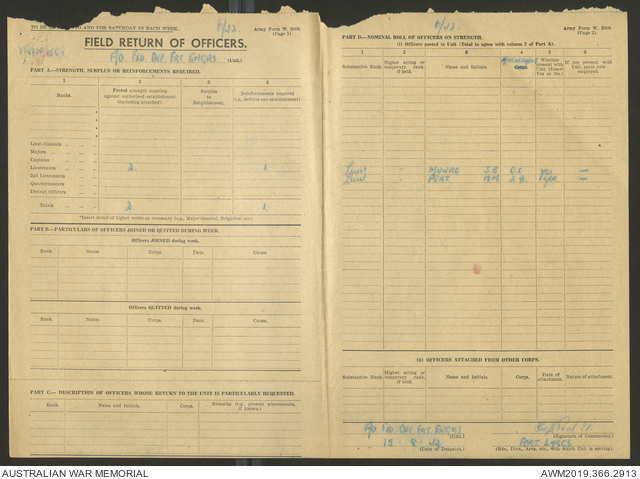 Army Form W. 3008.
(Page 1)
FIELD RETURN OF OFFICERS.
(Unit.)
PART A.—STRENGTH, SURPLUS OR REINFORCEMENTS REQUIRED.
1 2 3 4
Ranks.
Posted strength counting against authorised establishment (excluding attached).
Surplus to Establishment.
Reinforcements required (i.e., deficits on establishment)
Lieut.-Colonels
Majors
Captains
Lieutenants 2 1
2nd Lieutenants
Quartermasters
District Officers
Totals 2 1
*Insert detail of higher ranks as necessary (e.g., Major-General, Brigadier, etc.).
PART B.—PARTICULARS OF OFFICERS JOINED OR QUITTED DURING WEEK.
Officers JOINED during week.
Rank. Name. Corps. Date. Cause.
Officers QUITTED during week.
Rank. Name. Corps. Date. Cause.
PART C.—DESCRIPTION OF OFFICERS WHOSE RETURN TO THE UNIT IS PARTICULARLY REQUESTED.
Rank. Name and Initials. Corps. Remarks (e.g., present whereabouts, if known.)
Army Form W. 3008.
(Page 2).
PART D.—NOMINAL ROLL OF OFFICERS ON STRENGTH.
(i) Officers posted to Unit (Total to agree with column 2 of Part A).
1 2 3 4 5 6
Substantive Rank.
Higher acting or temporary rank, if held.
Name and Initials.
Whether present with Unit (Insert Yes or No.)
If not present with Unit, state now employed.
Lieut MUNRO yes
Lieut
(ii) OFFICERS ATTACHED FROM OTHER CORPS.
Substantive Rank.
Higher acting or temporary rank, if held.
Name and Initials.
Corps.
Date of attachment.
Nature of attachment.
(Unit.)
(Signature of Commander.)
15 - 8 - 42
(Date of Dispatch.)
(Bde., Divn., Area, etc., with which Unit is serving).
AUSTRALIAN WAR MEMORIAL
AWM2019.366.2913